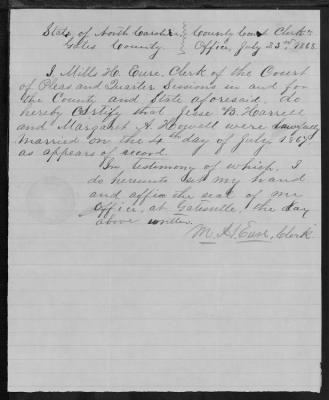 State of North Carolina } County Court Clerk's
Gates County. } Office, July 23rd 1868.
I, Mills H. Eure, Clerk of the Court
of Pleas and Quarter Sessions in and for
the County and State aforesaid, do
hereby Certify that Jesse B. Harrell
and Margaret A. Howell were lawfully
married on the 4th day of July 1867
as appears of record.
In testimony of which, I
do hereunto set my hand
and affix the seal of my
Office, at Gatesville, the day
above written.
M. H. Eure, Clerk